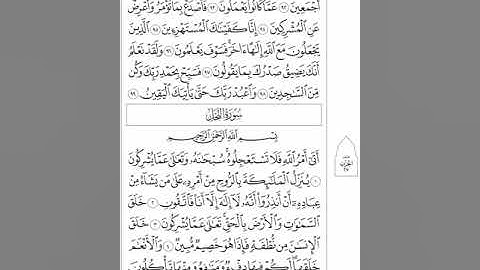 أَجْمَعِينَ ٩٢ عَمَّا كَانُوا۟ يَعْمَلُونَ ٩٣ فَٱصْدَعْ بِمَا تُؤْمَرُ وَأَعْرِضْ
عَنِ ٱلْمُشْرِكِينَ ٩٤ إِنَّا كَفَيْنَٰكَ ٱلْمُسْتَهْزِءِينَ ٩٥ ٱلَّذِينَ
يَجْعَلُونَ مَعَ ٱللَّهِ إِلَٰهًا ءَاخَرَ فَسَوْفَ يَعْلَمُونَ ٩٦ وَلَقَدْ نَعْلَمُ
أَنَّكَ يَضِيقُ صَدْرُكَ بِمَا يَقُولُونَ ٩٧ فَسَبِّحْ بِحَمْدِ رَبِّكَ وَكُن
مِّنَ ٱلسَّٰجِدِينَ ٩٨ وَٱعْبُدْ رَبَّكَ حَتَّىٰ يَأْتِيَكَ ٱلْيَقِينُ ٩٩
سُورَةُ النَّحْلِ
بِسْمِ ٱللَّهِ ٱلرَّحْمَٰنِ ٱلرَّحِيمِ
أَتَىٰٓ أَمْرُ ٱللَّهِ فَلَا تَسْتَعْجِلُوهُ سُبْحَٰنَهُۥ وَتَعَٰلَىٰ عَمَّا يُشْرِكُونَ
١ يُنَزِّلُ ٱلْمَلَٰٓئِكَةَ بِٱلرُّوحِ مِنْ أَمْرِهِۦ عَلَىٰ مَن يَشَآءُ مِنْ
عِبَادِهِۦٓ أَنْ أَنذِرُوٓا۟ أَنَّهُۥ لَآ إِلَٰهَ إِلَّآ أَنَا۠ فَٱتَّقُونِ ٢ خَلَقَ
ٱلسَّمَٰوَٰتِ وَٱلْأَرْضَ بِٱلْحَقِّ تَعَٰلَىٰ عَمَّا يُشْرِكُونَ ٣ خَلَقَ
ٱلْإِنسَٰنَ مِن نُّطْفَةٍ فَإِذَا هُوَ خَصِيمٌ مُّبِينٌ ٤ وَٱلْأَنْعَٰمَ
خَلَقَهَا لَكُمْ فِيهَا دِفْءٌ وَمَنَٰفِعُ وَمِنْهَا تَأْكُلُونَ